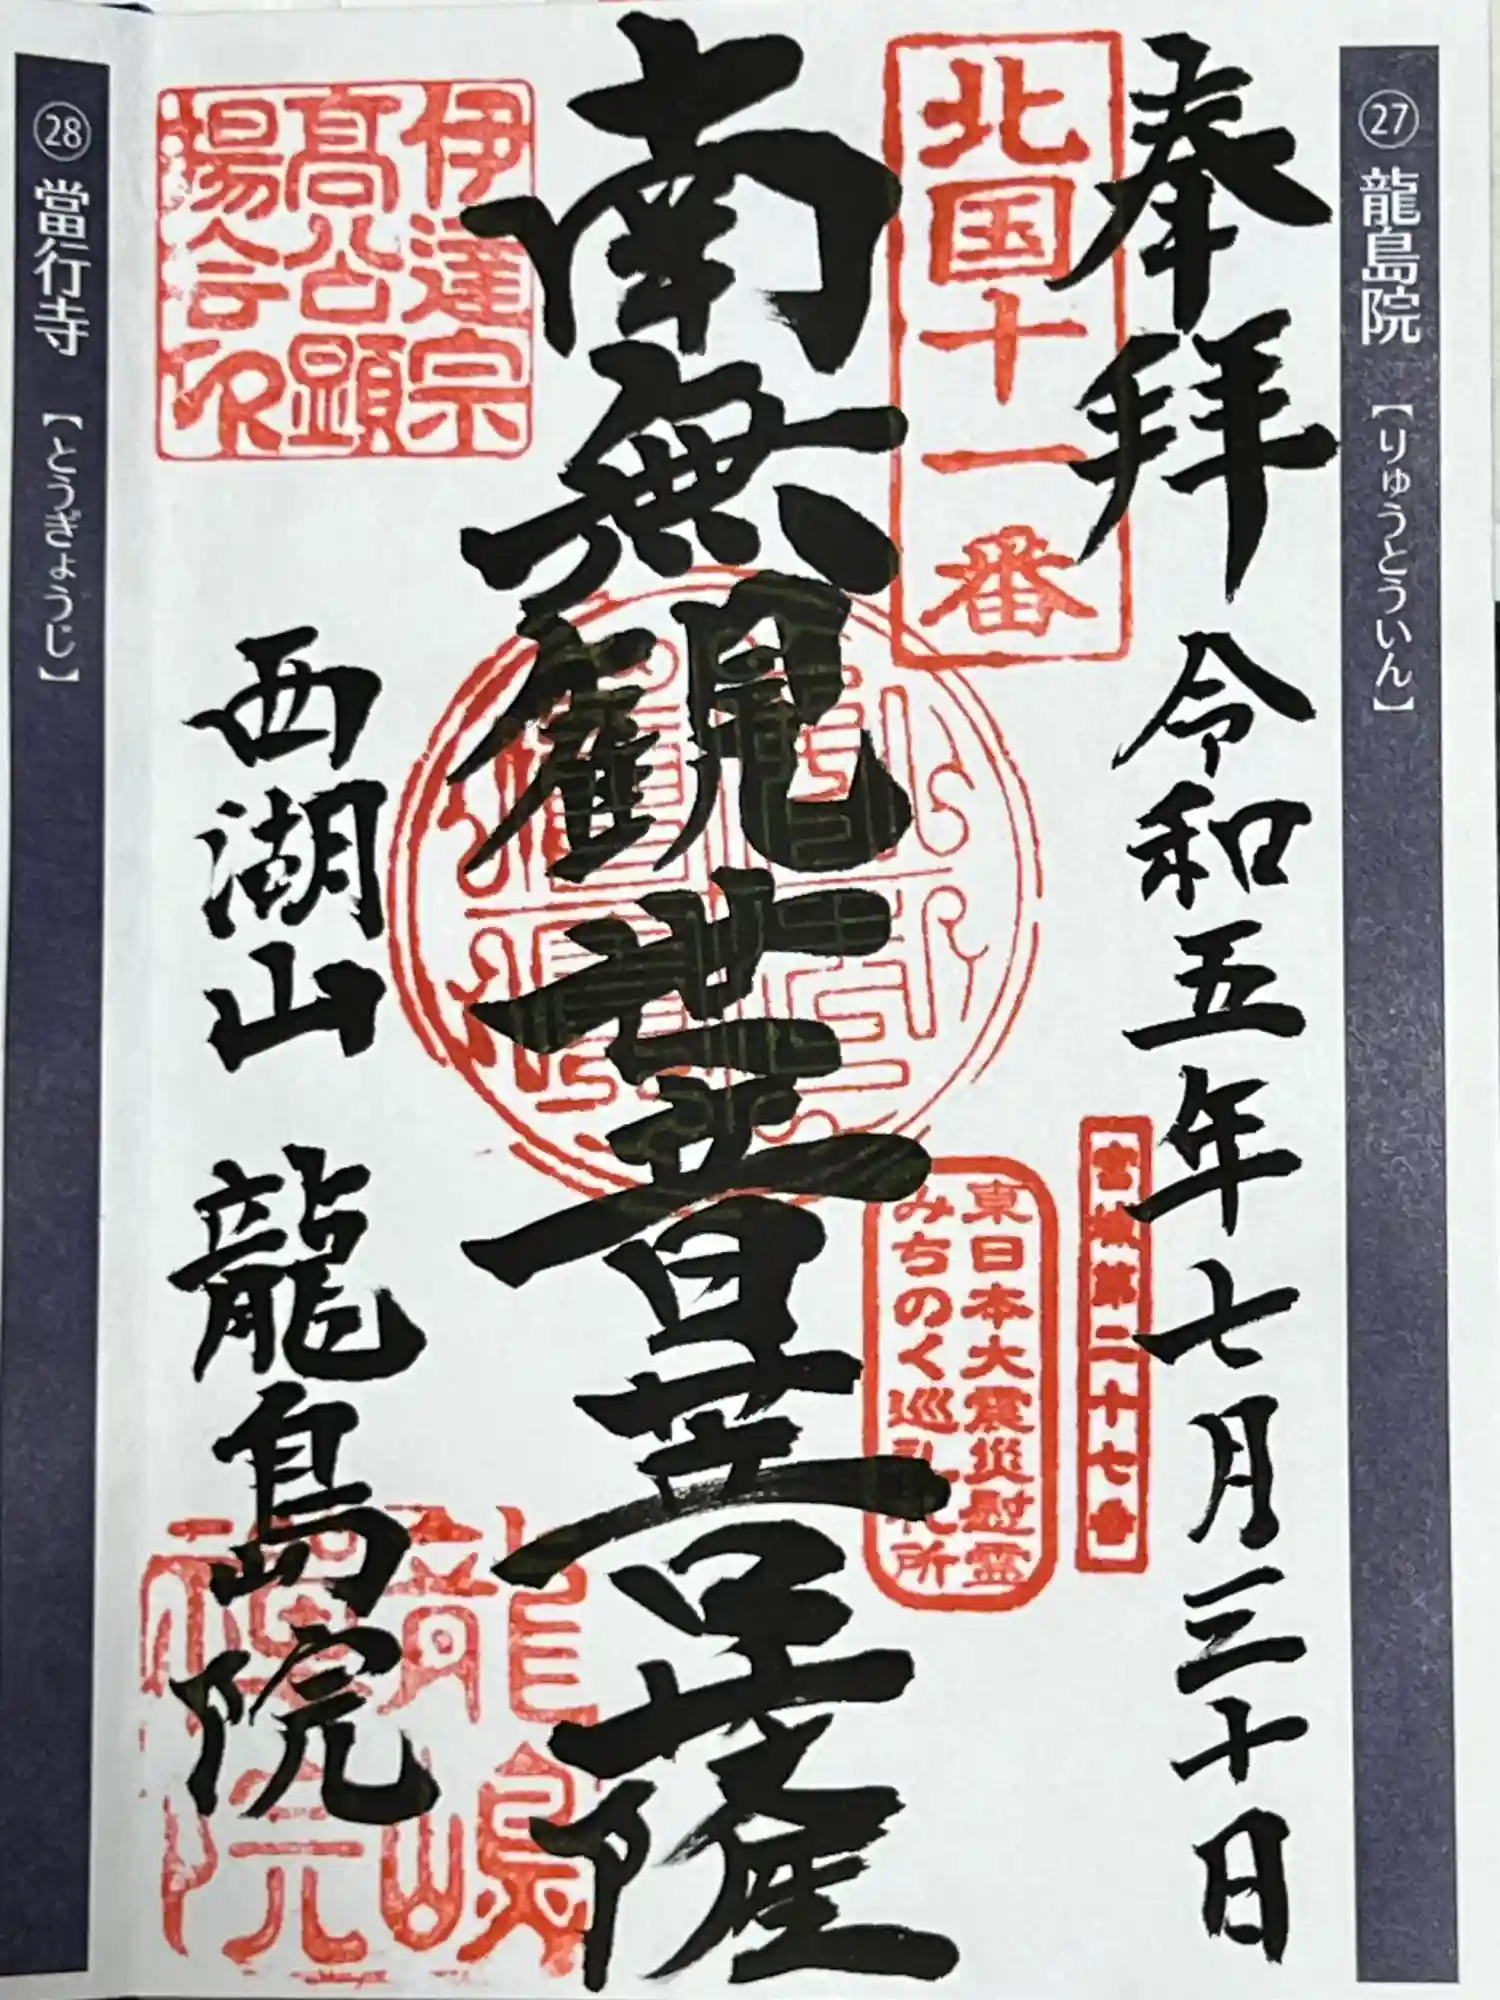 ㉗ 龍島院 【りゅうとういん】
奉拝 令和五年七月三十日
北国十一番
宮城第二十七番
東日本大震災慰霊
みちのく巡礼札所
南無観世音菩薩
伊達宗
高公顕
揚会印
西湖山 龍島院
㉘ 當行寺 【とうぎょうじ】